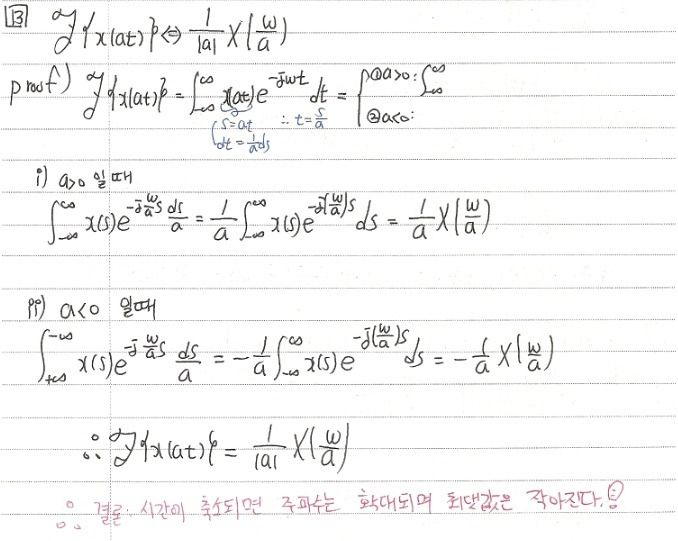 [3] ℱ{x(at)} ⇔ 1/|a| X(w/a)
proof) ℱ{x(at)} = ∫_{-∞}^{∞} x(at)e^{-jwt} dt = { ①a>0: ∫_{-∞}^{∞}
②a<0:
( s=at ∴ t=s/a
dt=1/a ds
i) a>0 일때
∫_{-∞}^{∞} x(s)e^{-j w/a s} ds/a = 1/a ∫_{-∞}^{∞} x(s)e^{-j(w/a)s} ds = 1/a X(w/a)
ii) a<0 일때
∫_{+∞}^{-∞} x(s)e^{-j w/a s} ds/a = -1/a ∫_{-∞}^{∞} x(s)e^{-j(w/a)s} ds = -1/a X(w/a)
∴ ℱ{x(at)} = 1/|a| X(w/a)
∴ 결론: 시간이 축소되면 주파수는 확대되며 최댓값은 작아진다.!